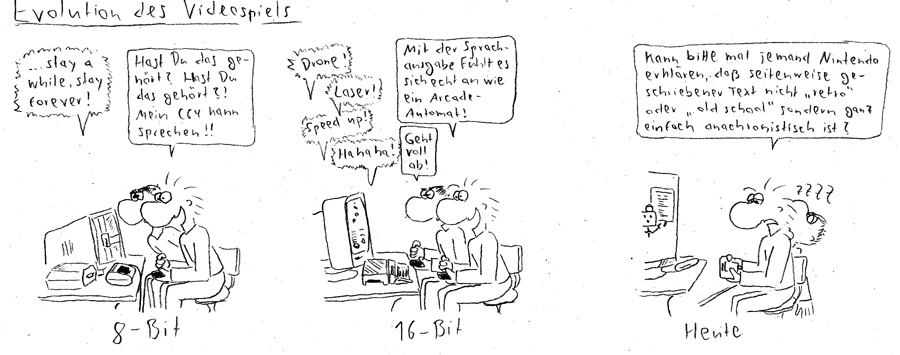 Evolution des Videospiels
...stay a
while, stay
forever!
Hast Du das ge-
hört? Hast Du
das gehört?!
Mein C64 kann
sprechen!!
8-Bit
Drone!
Laser!
Speed up!
Hahaha!
Mit der Sprach-
ausgabe fühlt es
sich echt an wie
ein Arcade-
Automat!
Geht
voll
ab!
16-Bit
Kann bitte mal jemand Nintendo
erklären, daß seitenweise ge-
schriebener Text nicht „retro"
oder „old school" sondern ganz
einfach anachronistisch ist?
????
Heute